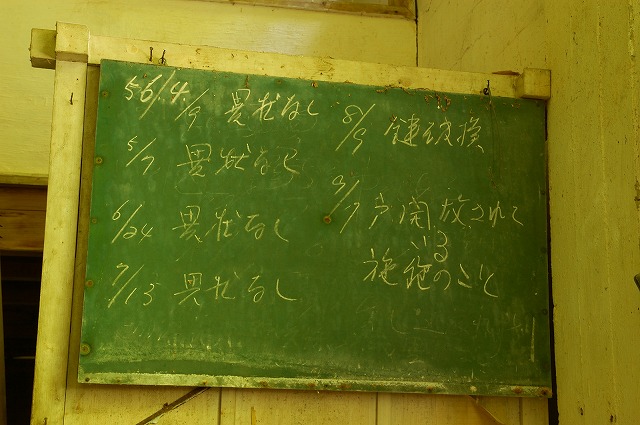 56/4/9 異状なし
5/7 異状なし
6/24 異状なし
7/15 異状なし
8/9 鍵破損
9/7 戸開放されて
いる
施錠のこと